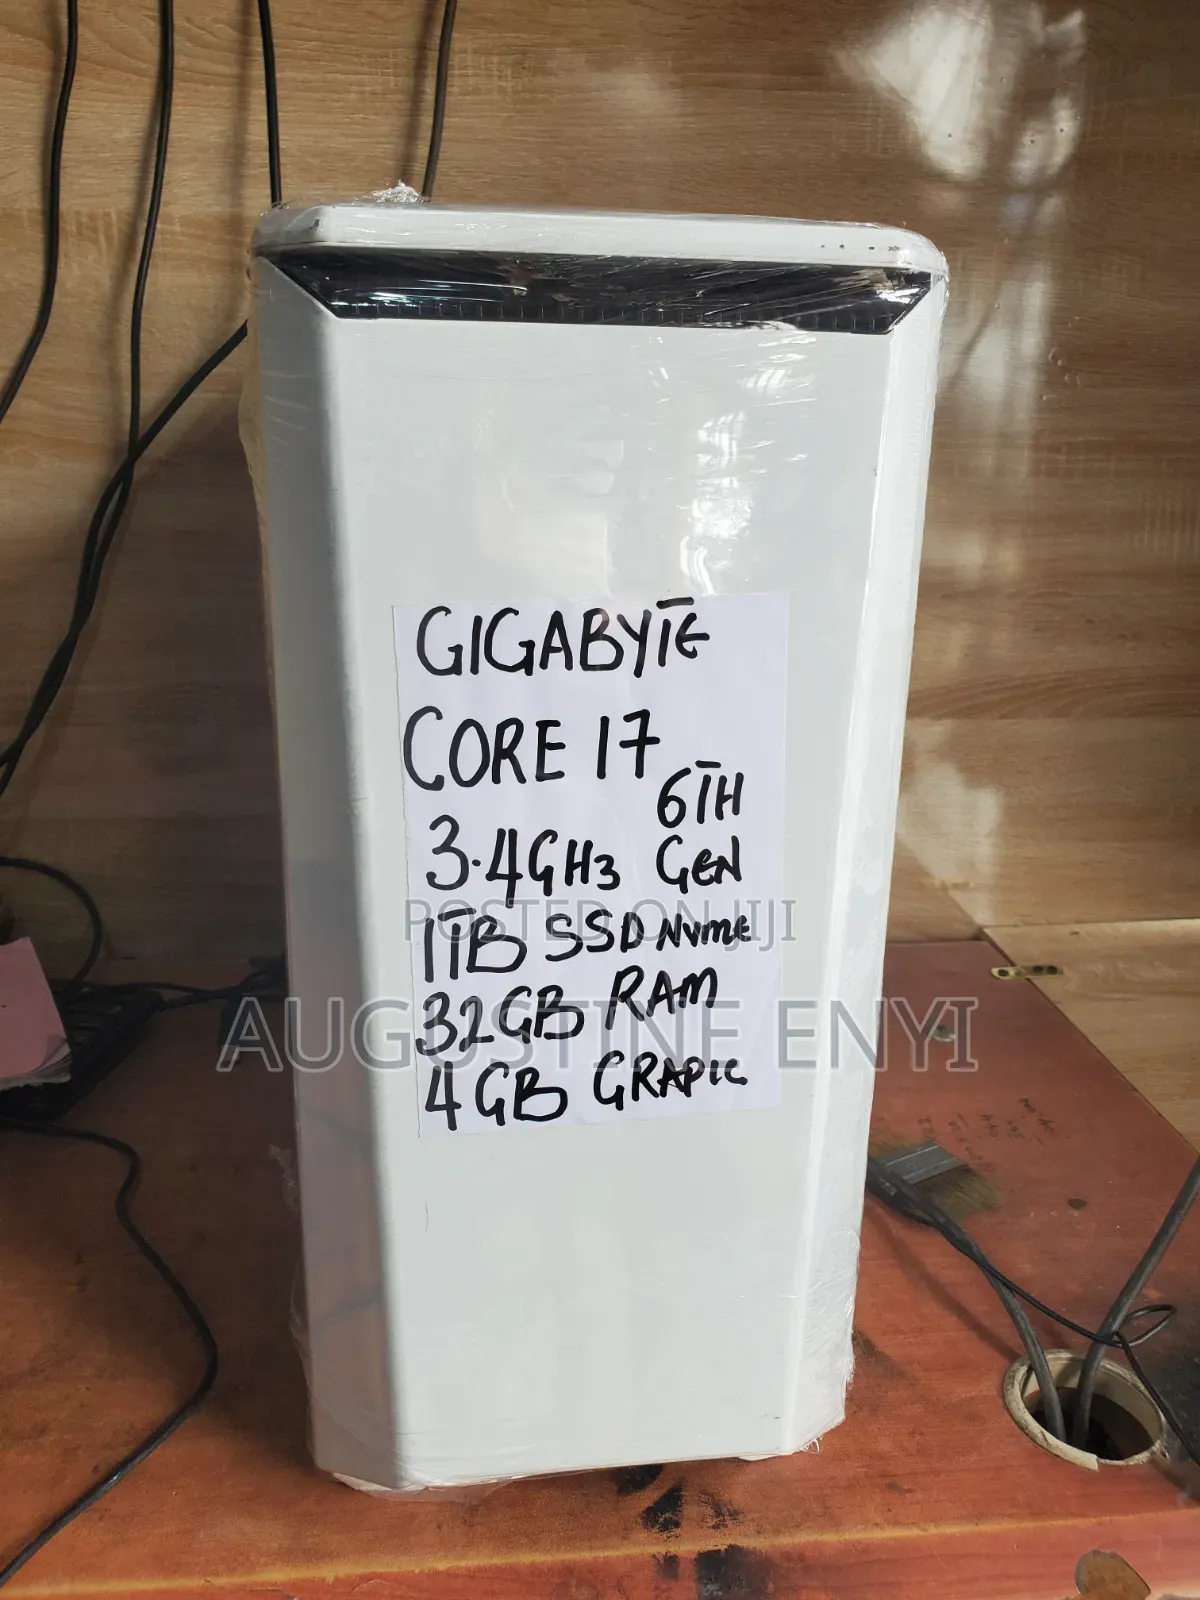 GIGABYTE
CORE I7
6TH
3.4GHz GEN
1TB SSD NVME
POSTED ON JIJI
32GB RAM
AUGUSTINE ENYI
4GB GRAPIC